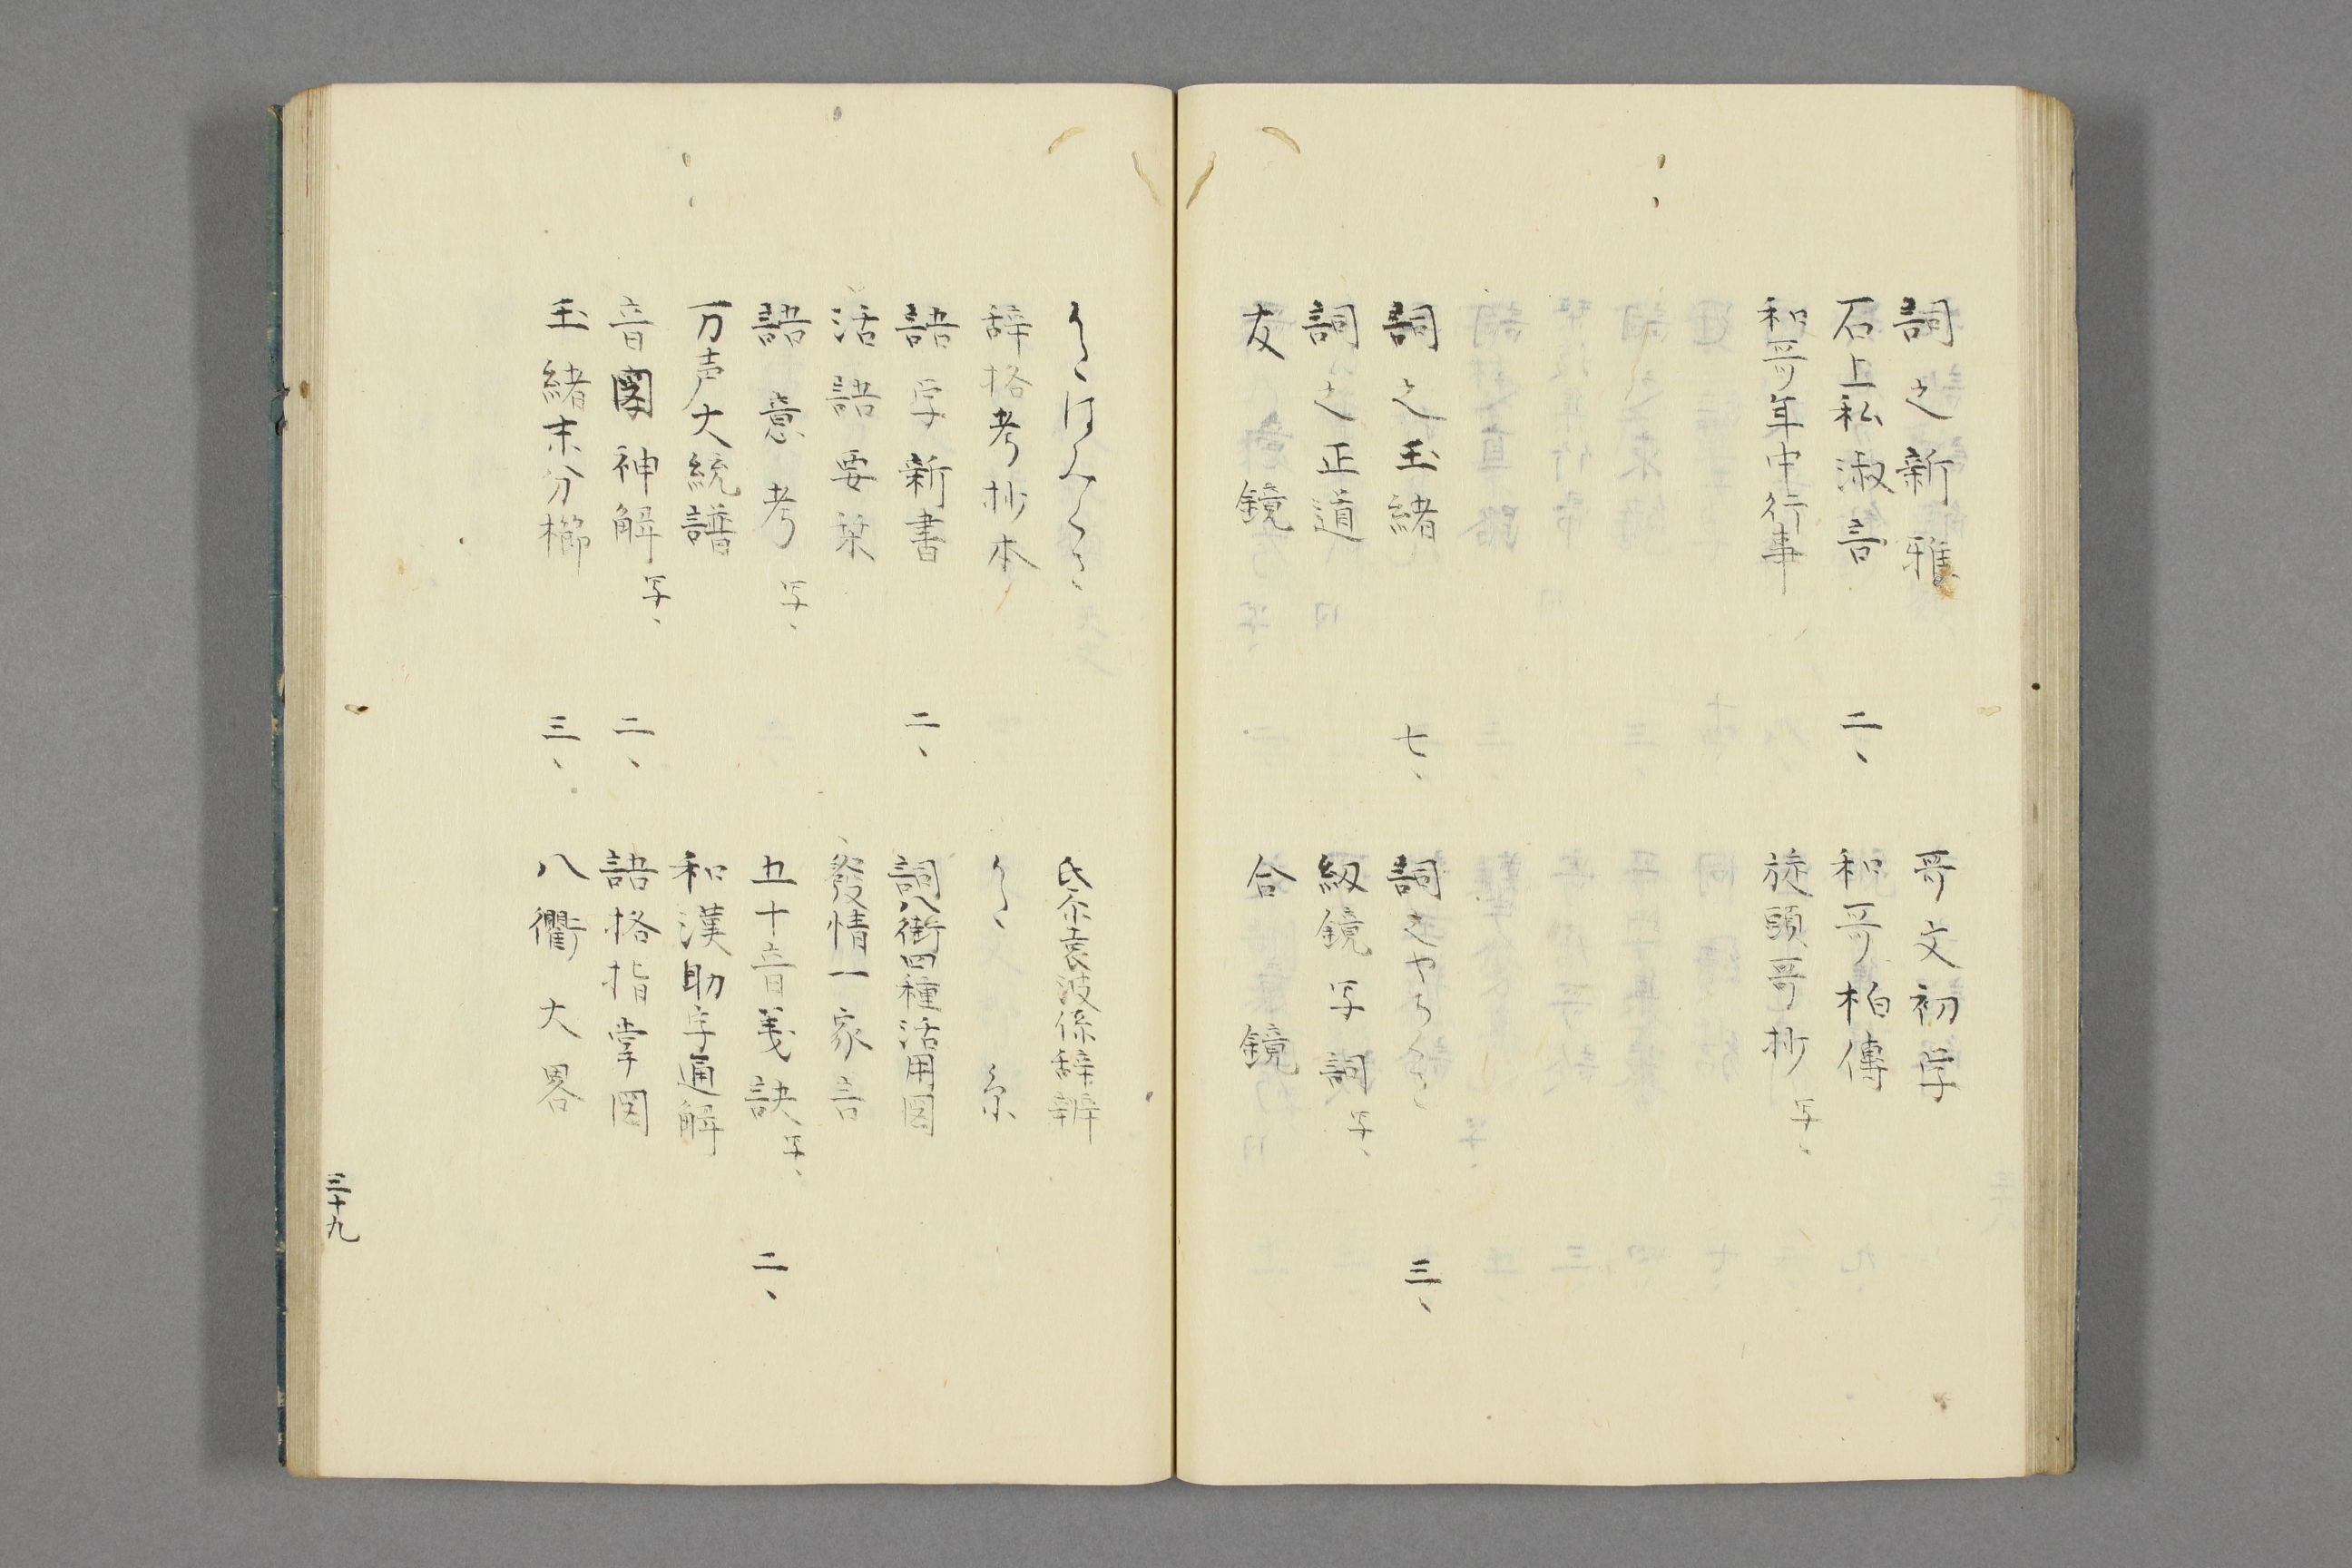 詞之新雅　哥文初学
石上私淑言　二、　和哥柏傳
和哥年中行事　旋頭哥抄　写、
詞之玉緒　七、　詞之や　三、
詞之正道　紐鏡写詞　写、
友鏡　合鏡
氐尓袁波係辞辨
辞格考抄本
語学新書　二、　詞八衢四種活用図
活語要栞　發情一家言
語意考　写、　五十音義訣　写、　二、
万声大統譜　和漢助字通解
音図神解　写、　二、　語格指掌図
玉緒末分櫛　三、　八衢大畧
三十九